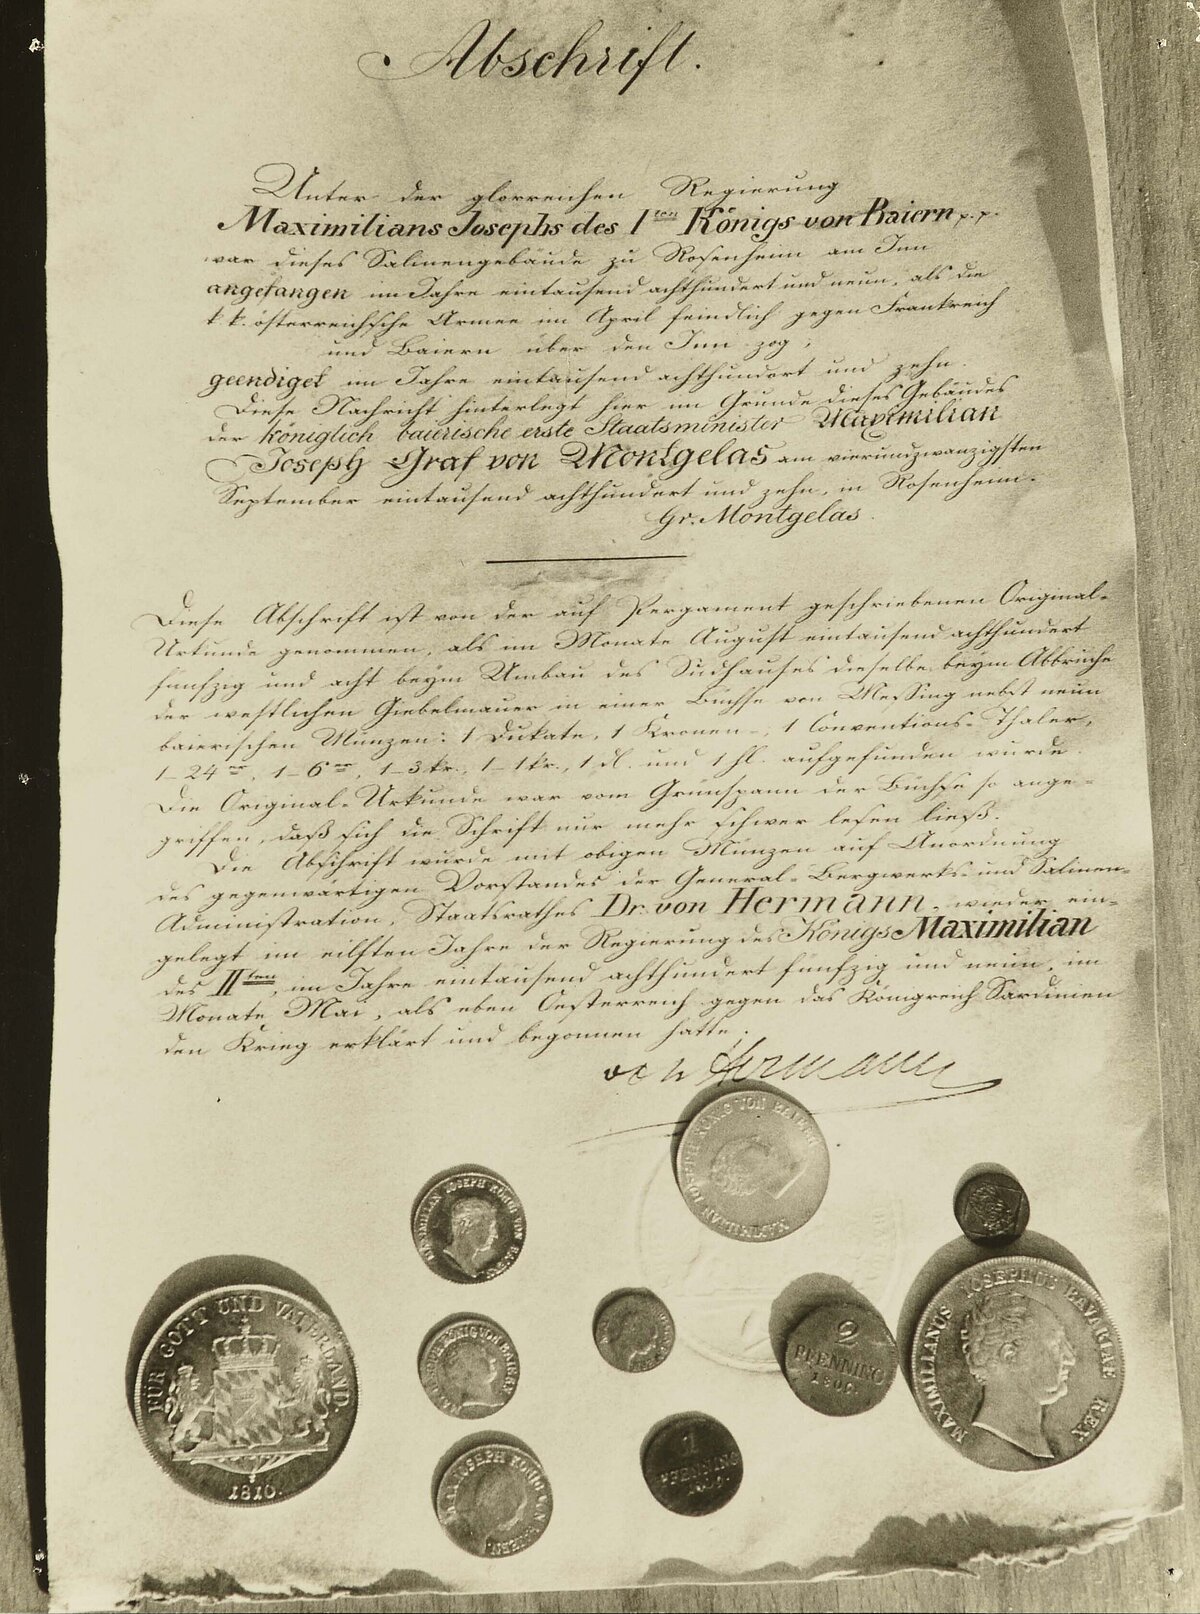 Abschrift.
Unter der glorreichen Regierung
Maximilians Josephs des 1ten Königs von Baiern p. p.
war dieses Salinengebäude zu Rosenheim am Inn
angefangen im Jahre eintausend achthundert und neun, als die
k. k. österreichische Armee im April feindlich gegen Frankreich
und Baiern über den Inn zog;
geendiget im Jahre eintausend achthundert und zehn.
Diese Nachricht hinterlegt hier im Grunde dieses Gebäudes
der königlich baierische erste Staatsminister Maximilian
Joseph Graf von Montgelas am vierundzwanzigsten
September eintausend achthundert und zehn, in Rosenheim.
Gr. Montgelas.
Diese Abschrift ist von der auf Pergament geschriebenen Original-
Urkunde genommen, als im Monate August eintausend achthundert
fünfzig und acht beym Umbau des Sudhauses dieselbe beym Abbruche
der westlichen Giebelmauer in einer Büchse von Messing nebst neun
baierischen Münzen: 1 Dukate, 1 Kronen-, 1 Conventions-Thaler,
1-24er, 1-6er, 1-3kr., 1-1kr., 1 dl. und 1 hl. aufgefunden wurde.
Die Original-Urkunde war vom Grünspann der Büchse so ange-
griffen, daß sich die Schrift nur mehr schwer lesen ließ.
Die Abschrift wurde mit obigen Münzen auf Anordnung
des gegenwärtigen Vorstandes der General-Bergwerks- und Salinen-
Administration, Staatsrathes Dr. von Hermann, wieder ein-
gelegt im eilften Jahre der Regierung des Königs Maximilian
des IIten, im Jahre eintausend achthundert fünfzig und neun, im
Monate Mai, als eben Oesterreich gegen das Königreich Sardinien
den Krieg erklärt und begonnen hatte.
von Hermann
MAXIMILIAN IOSEPH KÖNIG VON BAIERN
MAXIMILIAN IOSEPH KÖNIG VON BAIERN
FÜR GOTT UND VATERLAND.
1810.
KÖNIG VON BAIERN
2
PFENNING
MAXIMILIANUS IOSEPHUS BAVARIAE REX
IOSEPH KÖNIG VON BAIERN
1
PFENNING